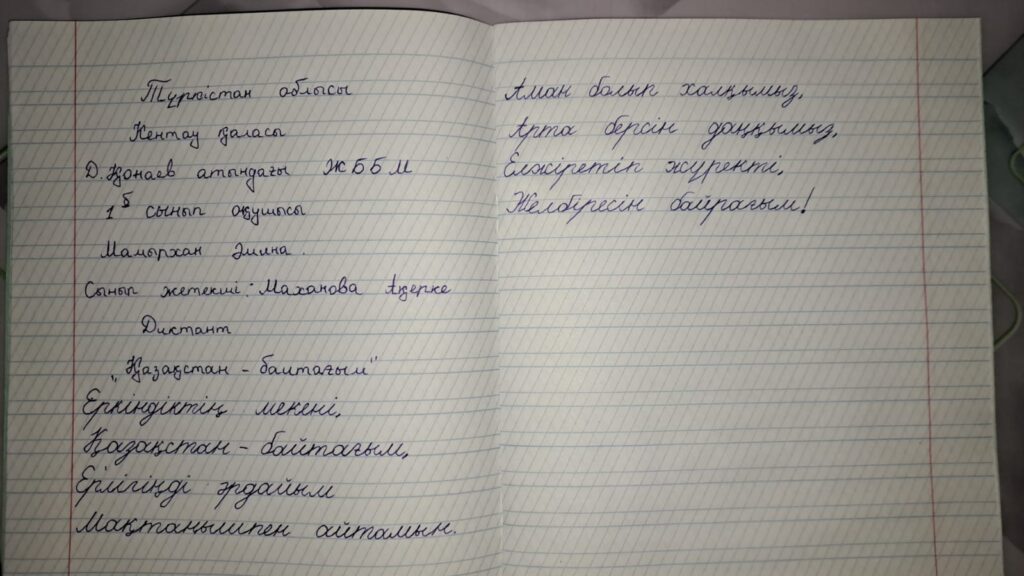 Түркістан облысы
Кентау қаласы
Д. Қонаев атындағы ЖББМ
1 б сынып оқушысы
Мамырхан
Сынып жетекші: Маханова Ақерке
Диктант
„Қазақстан - байтағым"
Еркіндіктің мекені,
Қазақстан - байтағым,
Ерлігіңді әрдайым
Мақтанышпен айтамын.
Аман болып халқымыз,
Арта берсін даңқымыз,
Елжіретіп жүректі,
Желбіресін байрағым!